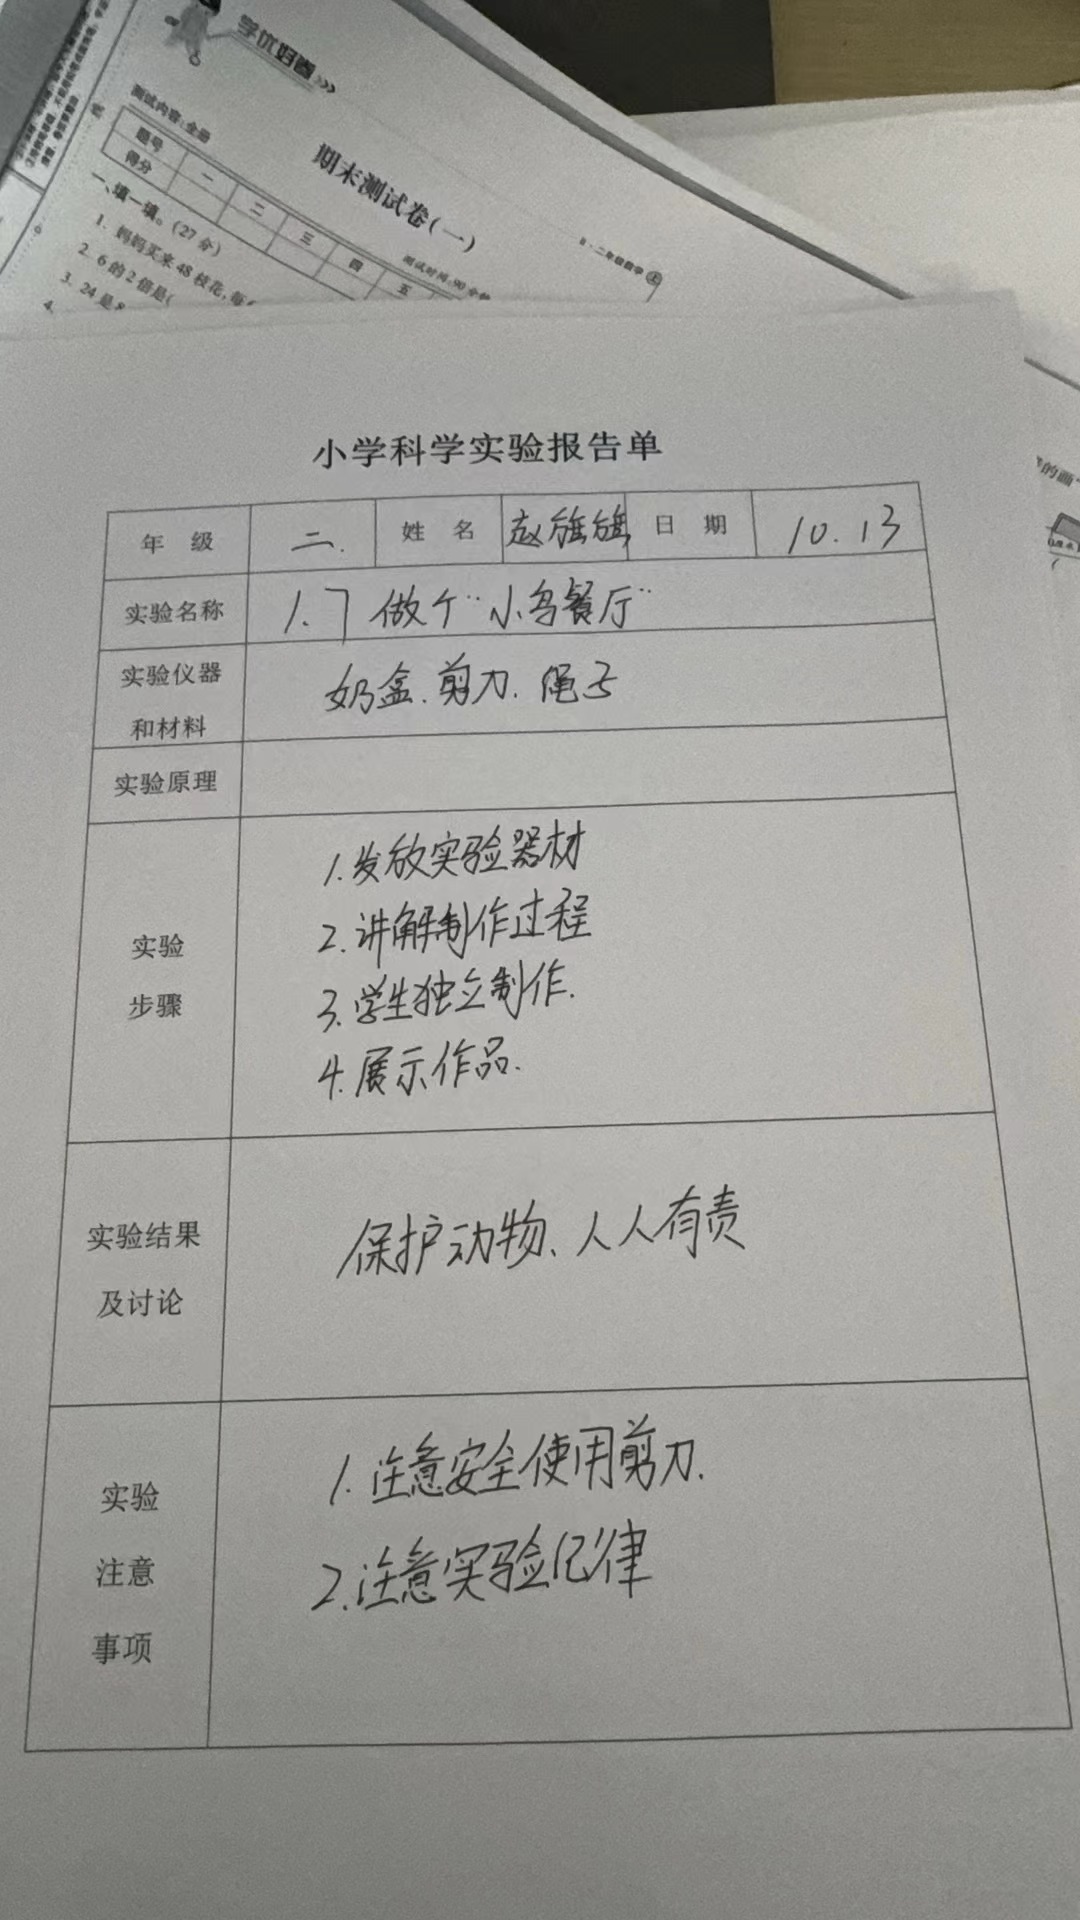 学优好卷>>>
测试内容:全册
期末测试卷(一)
测试时间:90分钟
B·二年级数学 上
题号 一 二 三 四 五
得分
一、填一填。(27分)
1. 妈妈买来48枝花,每
2. 6的2倍是(
3. 24是8
4.
小学科学实验报告单
年级 二. 姓名 赵旗旗 日期 10.13
实验名称 1.7 做个“小鸟餐厅”
实验仪器
和材料
奶盒、剪刀、绳子
实验原理
实验
步骤
1.发放实验器材
2.讲解制作过程
3.学生独立制作.
4.展示作品.
实验结果
及讨论
保护动物、人人有责
实验
注意
事项
1.注意安全使用剪刀.
2.注意实验纪律